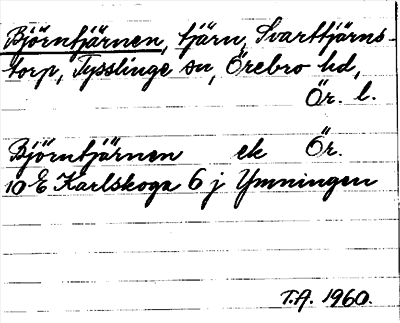 Björntjärnen, tjärn, Svarttjärns-
torp, Tysslinge sn, Örebro hd,
Ör. l.
Björntjärnen ek Ör.
10 E Karlskoga 6 j Ymningen
T.A. 1960.